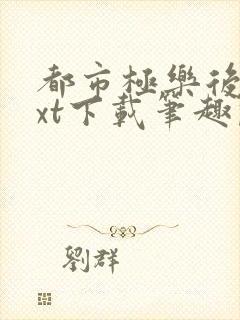 都市極樂後
xt下載筆趣
劉群